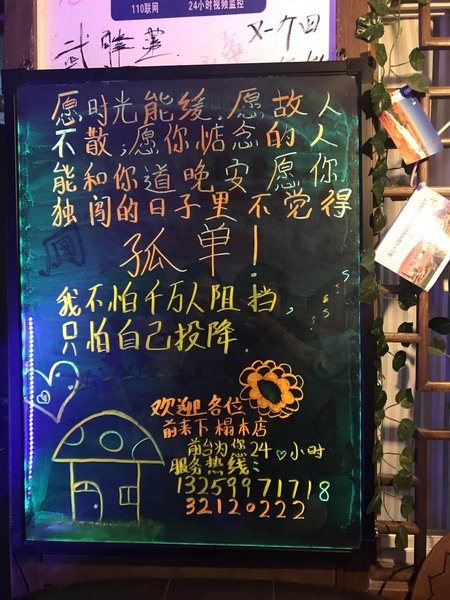 110联网 24小时视频监控
愿时光能缓,愿故人
不散;愿你惦念的人
能和你道晚安,愿你
独闯的日子里不觉得
孤单!
我不怕千万人阻挡,
只怕自己投降
欢迎各位
前来下榻本店
前台为您24小时
服务热线:
13259971718
32120222